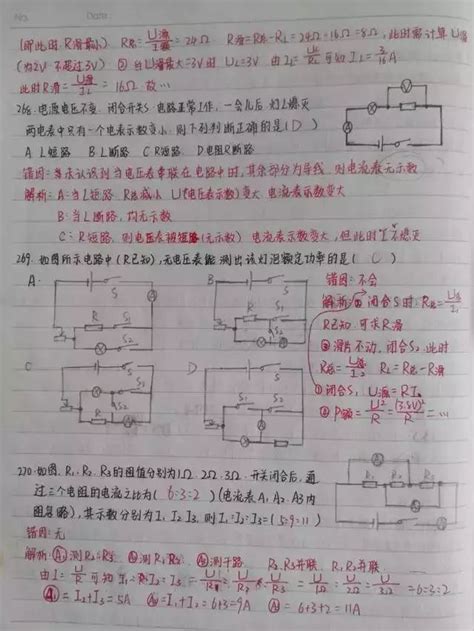 No.
Date
(即此时R滑最小) R总=U源/I=24Ω R滑=R总-RL=24Ω-16Ω=8Ω, 此时需计算U滑
(为2V不超过3V) ② 当U滑最大=3V时 UL=3V 由IL=UL/RL可知IL=3/16A
此时R滑=U滑/IL=16Ω 故…
268.电源电压不变.闭合开关S.电路正常工作,一会儿后灯L熄灭
两电表中只有一个电表示数变小,则下列判断正确的是(D)
A L短路 B L断路 C R短路 D电阻R断路
错因:当未认识到当电压表串联在电路中时,其余部分为导线,则电流表无示数
解析:A:当L短路,R总减小 U(电压表示数)变大 电流表示数变大
B:当L断路,均无示数
C:R短路,则电压表被短路(无示数) 电流表示数变大,但此时L不熄灭
269.如图所示电路中(R已知),无电压表能测出该灯泡额定功率的是(C)
A.
B
C
D
错因:不会
解析:① 闭合S时:R总=U/I
R已知.可求R滑
② 滑片不动,闭合S2此时
R总=U/I2 RL=R总-R滑
①闭合S1 U源=RI2
② P额=U²/R=(3.8V)²/R=…
270.如图.R1.R2.R3的阻值分别为1Ω.2Ω.3Ω.开关闭合后,通
过三个电阻的电流之比为(6:3:2)(电流表A1,A2,A3内
阻忽略),其示数分别为I1 I2 I3,则I1:I2:I3=(5:9:11)
错因:无
解析:A1测R2 R3. A2测R1 R2. A3测干路 R2.R3并联.R1.R2并联.
=U/1Ω:U/2Ω:U/3Ω=6:3:2
A1=I2+I3=5A A2=I1+I2=6+3=9A A3=6+3+2=11A